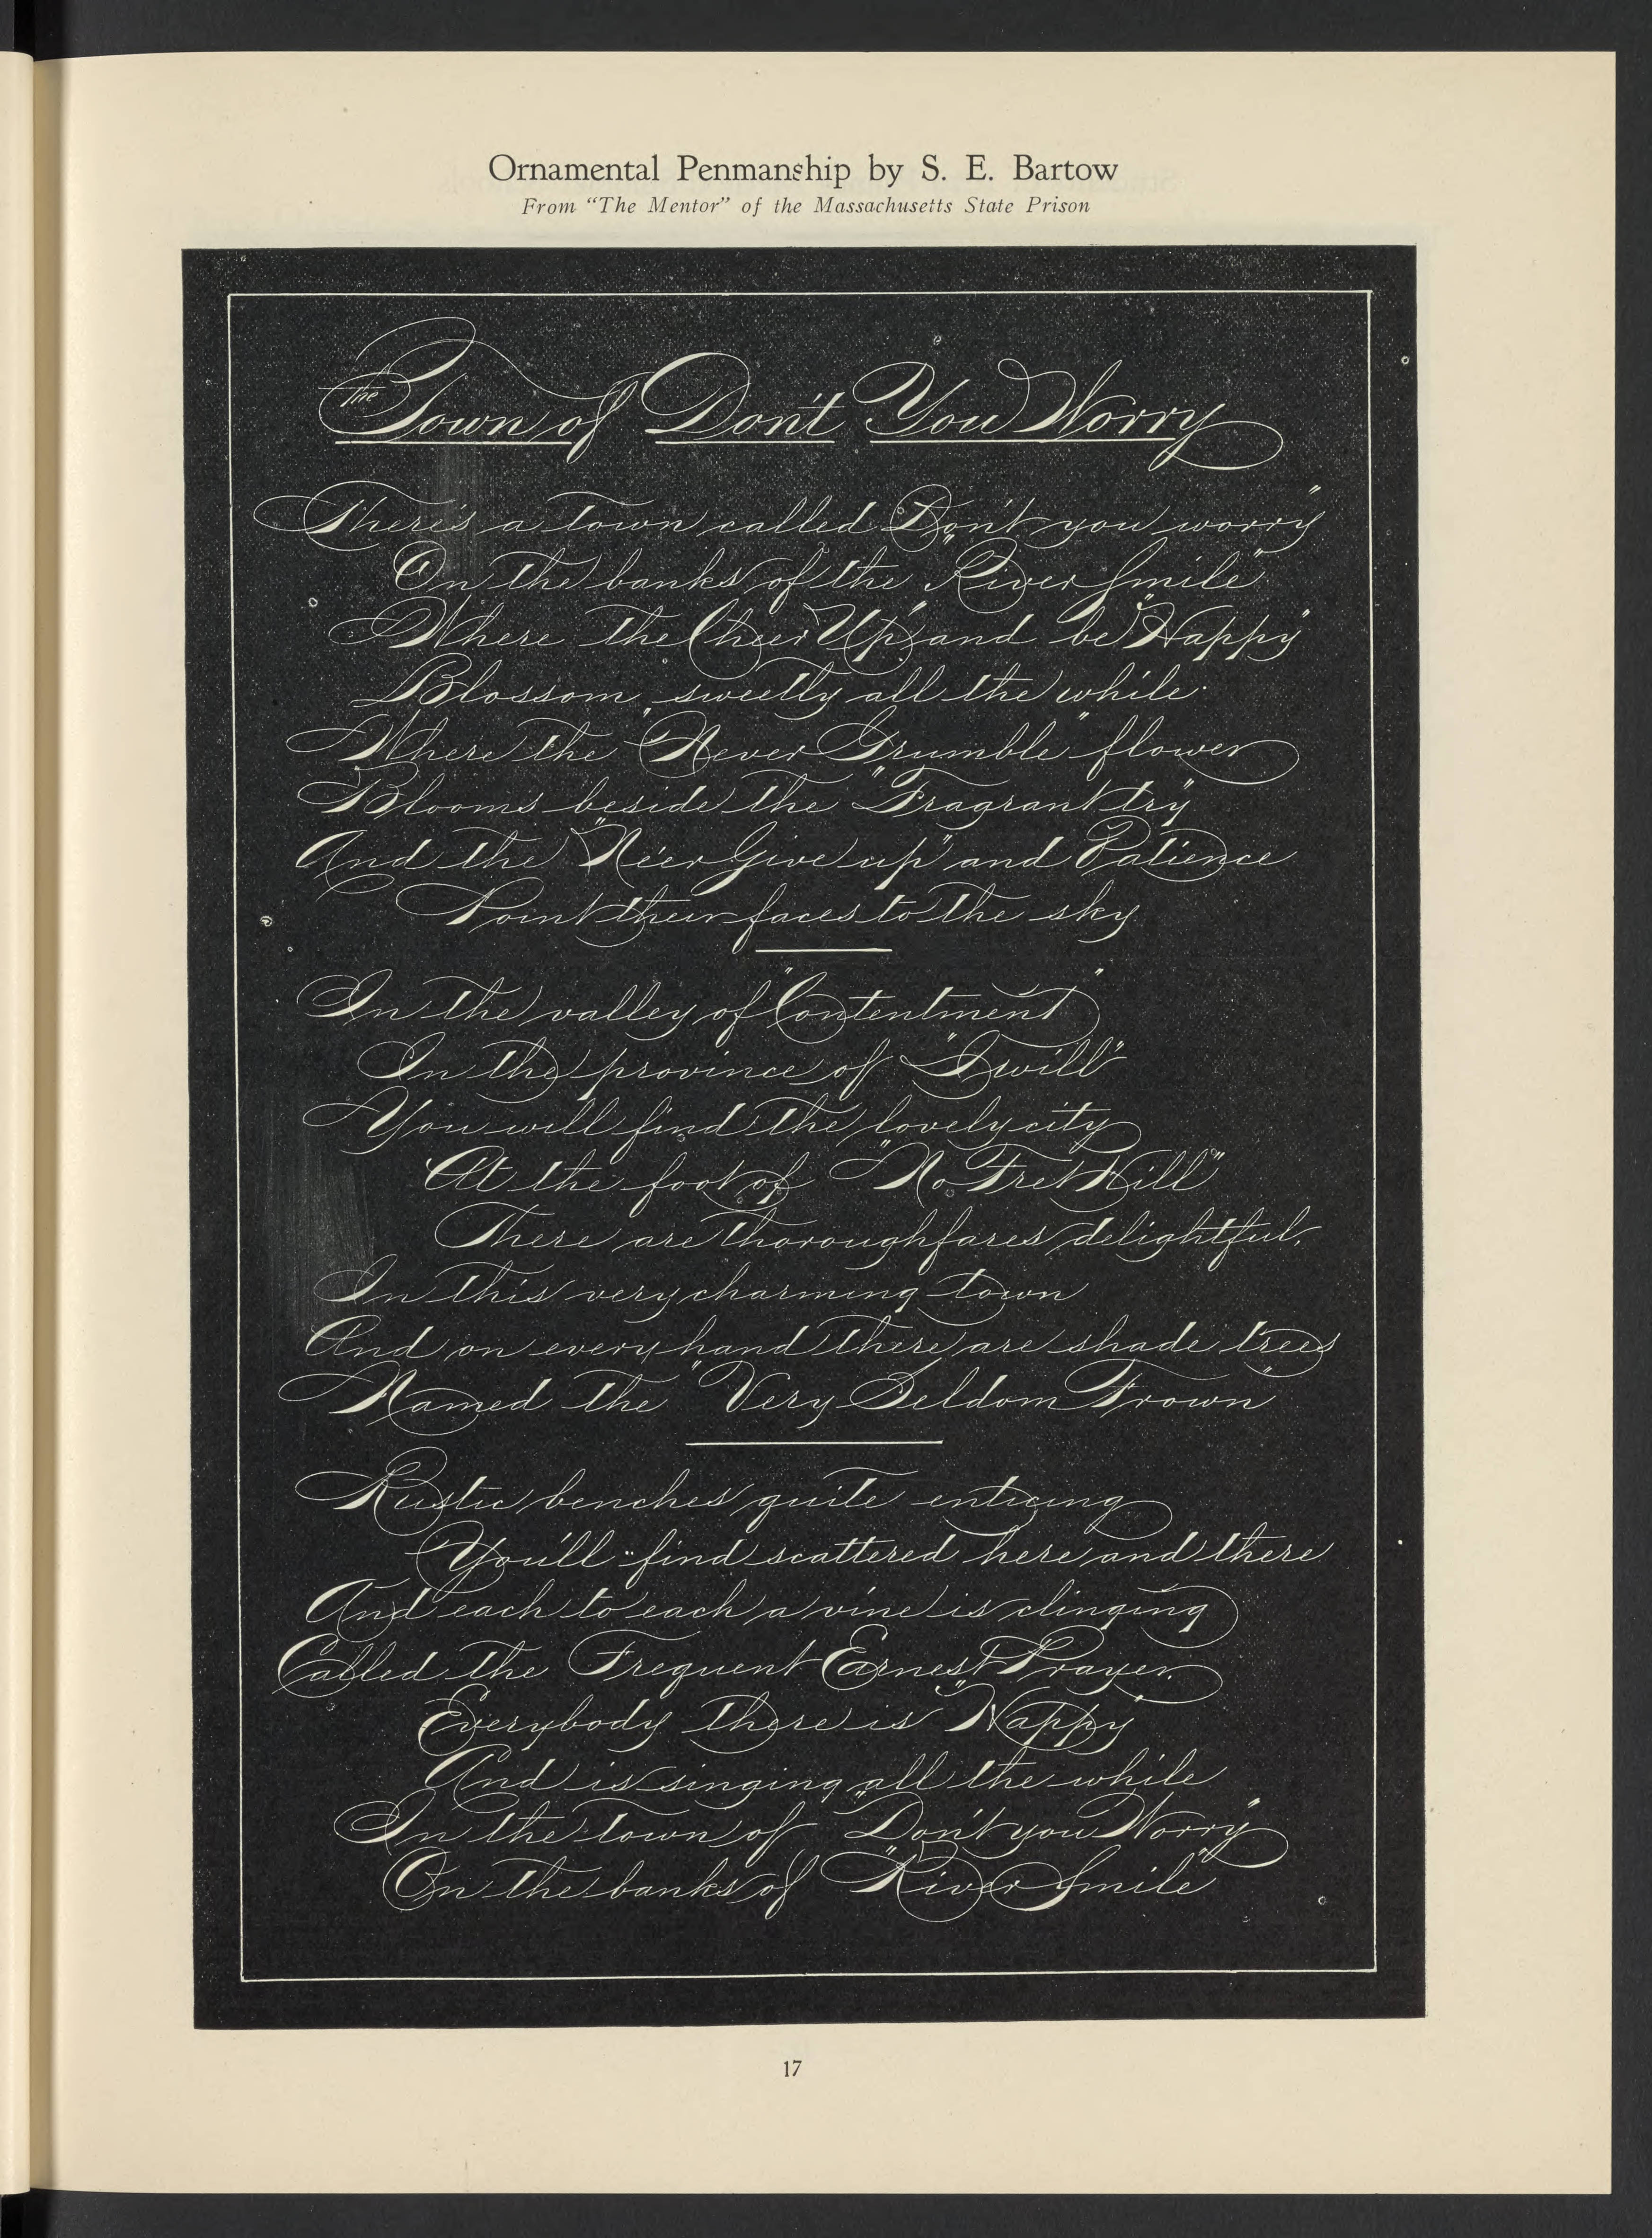 Ornamental Penmanship by S. E. Bartow
From "The Mentor" of the Massachusetts State Prison
The Town of Don't You Worry
There's a town called "Don't you worry"
On the banks of the "River Smile"
Where the "Cheer Up" and "be Happy"
Blossom sweetly all the while.
Where the "Never Grumble" flower
Blooms beside the "Fragrant try"
And the "Ne'er Give up" and Patience
Point their faces to the sky
In the valley of "Contentment"
In the province of "I will"
You will find the lovely city
At the foot of "No Fret Hill"
There are thoroughfares delightful,
In this very charming town
And on every hand there are shade trees
Named the "Very Seldom Frown"
Rustic benches quite enticing
You'll find scattered here and there
And each to each a vine is clinging
Called the Frequent Earnest Prayer.
Everybody there is "Happy"
And is singing all the while
In the town of "Don't you Worry"
On the banks of "River Smile"
17